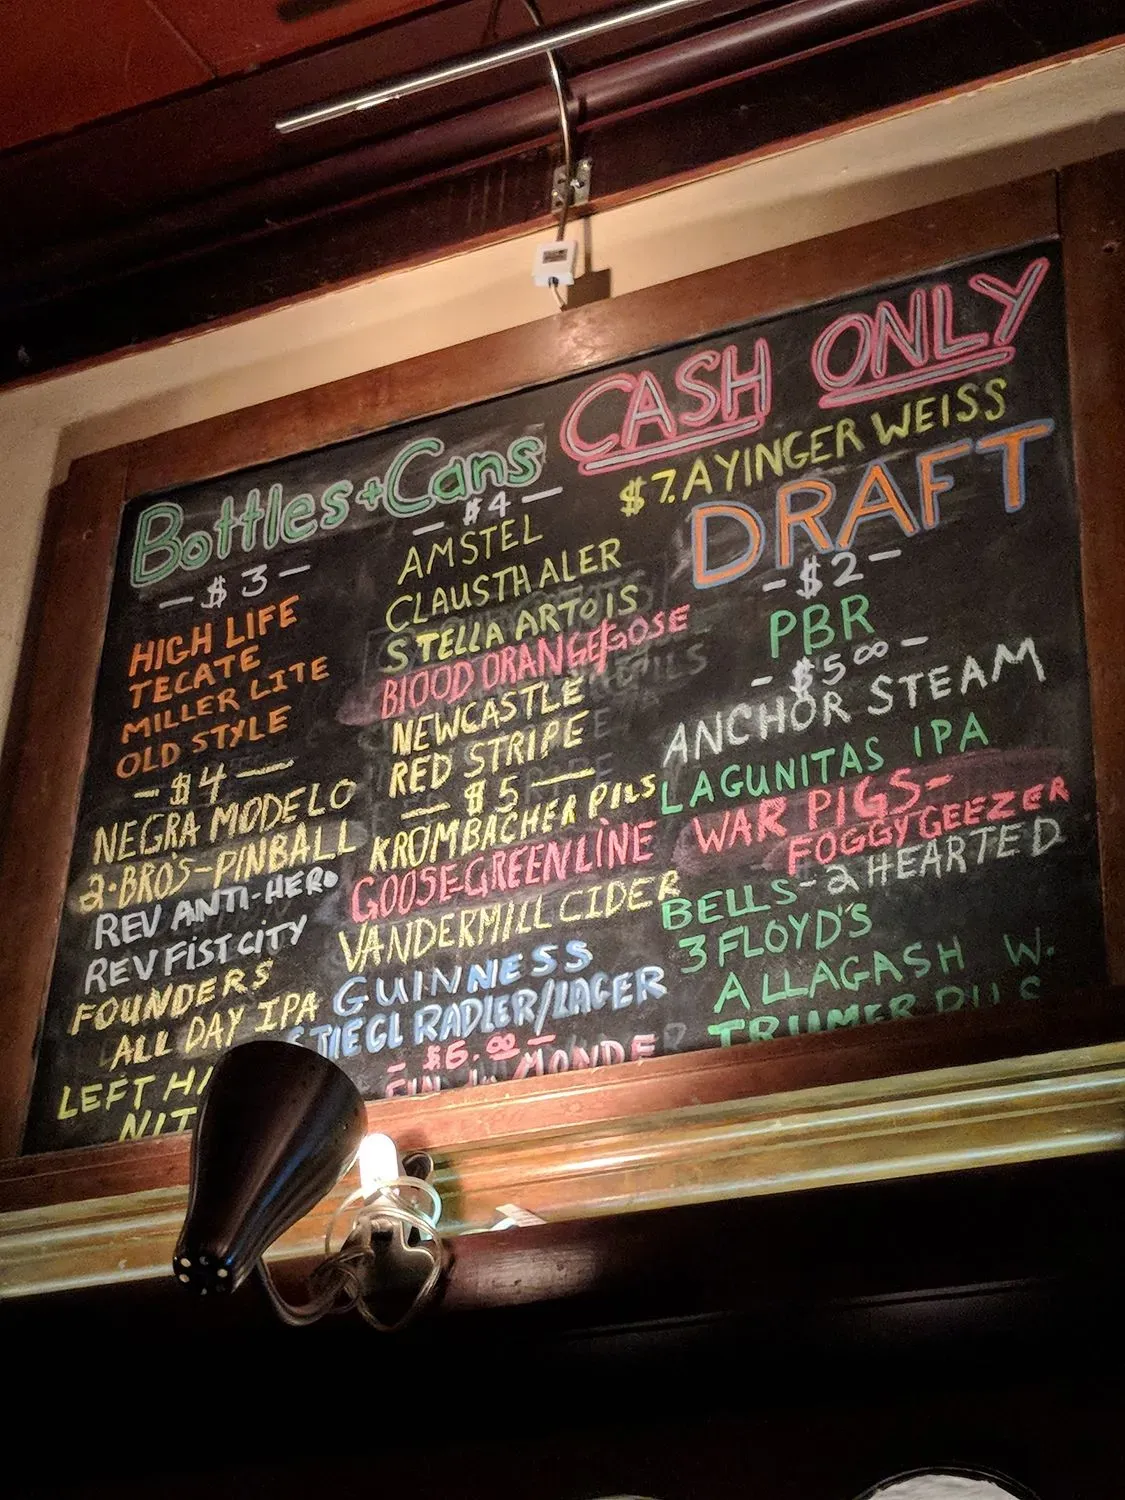 CASH ONLY
$7. AYINGER WEISS
Bottles + Cans
- $3 -
HIGH LIFE
TECATE
MILLER LITE
OLD STYLE
- $4 -
NEGRA MODELO
2·BRO'S-PINBALL
REV ANTI-HERO
REV FIST CITY
FOUNDERS
ALL DAY IPA
LEFT
- $4 -
AMSTEL
CLAUSTHALER
STELLA ARTOIS
BLOOD ORANGE GOSE
NEWCASTLE
RED STRIPE
- $5 -
KROMBACHER PILS
GOOSE-GREENLINE
VANDERMILL CIDER
GUINNESS
STIEGL RADLER/LAGER
- $6.00 -
MONDE
DRAFT
- $2 -
PBR
- $5 00 -
ANCHOR STEAM
LAGUNITAS IPA
WAR PIGS-
FOGGY GEEZER
BELLS-2 HEARTED
3 FLOYD'S
ALLAGASH W.
TRUMER PILS